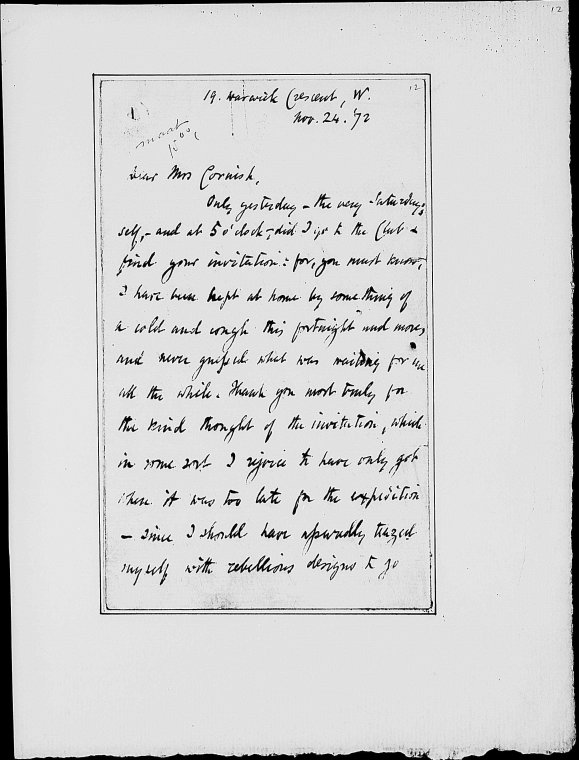 12
12
19. Warwick Crescent, W.
Nov. 24. '72
Dear Mrs Cornish,
Only yesterday – the very Saturday
self, – and at 5 o'clock – did I go to the Club &
find your invitation: for, you must know,
I have been kept at home by something of
a cold and cough this fortnight and more,
and never guessed what was waiting for me
all the while. Thank you most truly for
the kind thought of the invitation, which
in some sort I rejoice to have only got
when it was too late for the expedition
– since I should have assuredly teazed
myself with rebellious designs to go